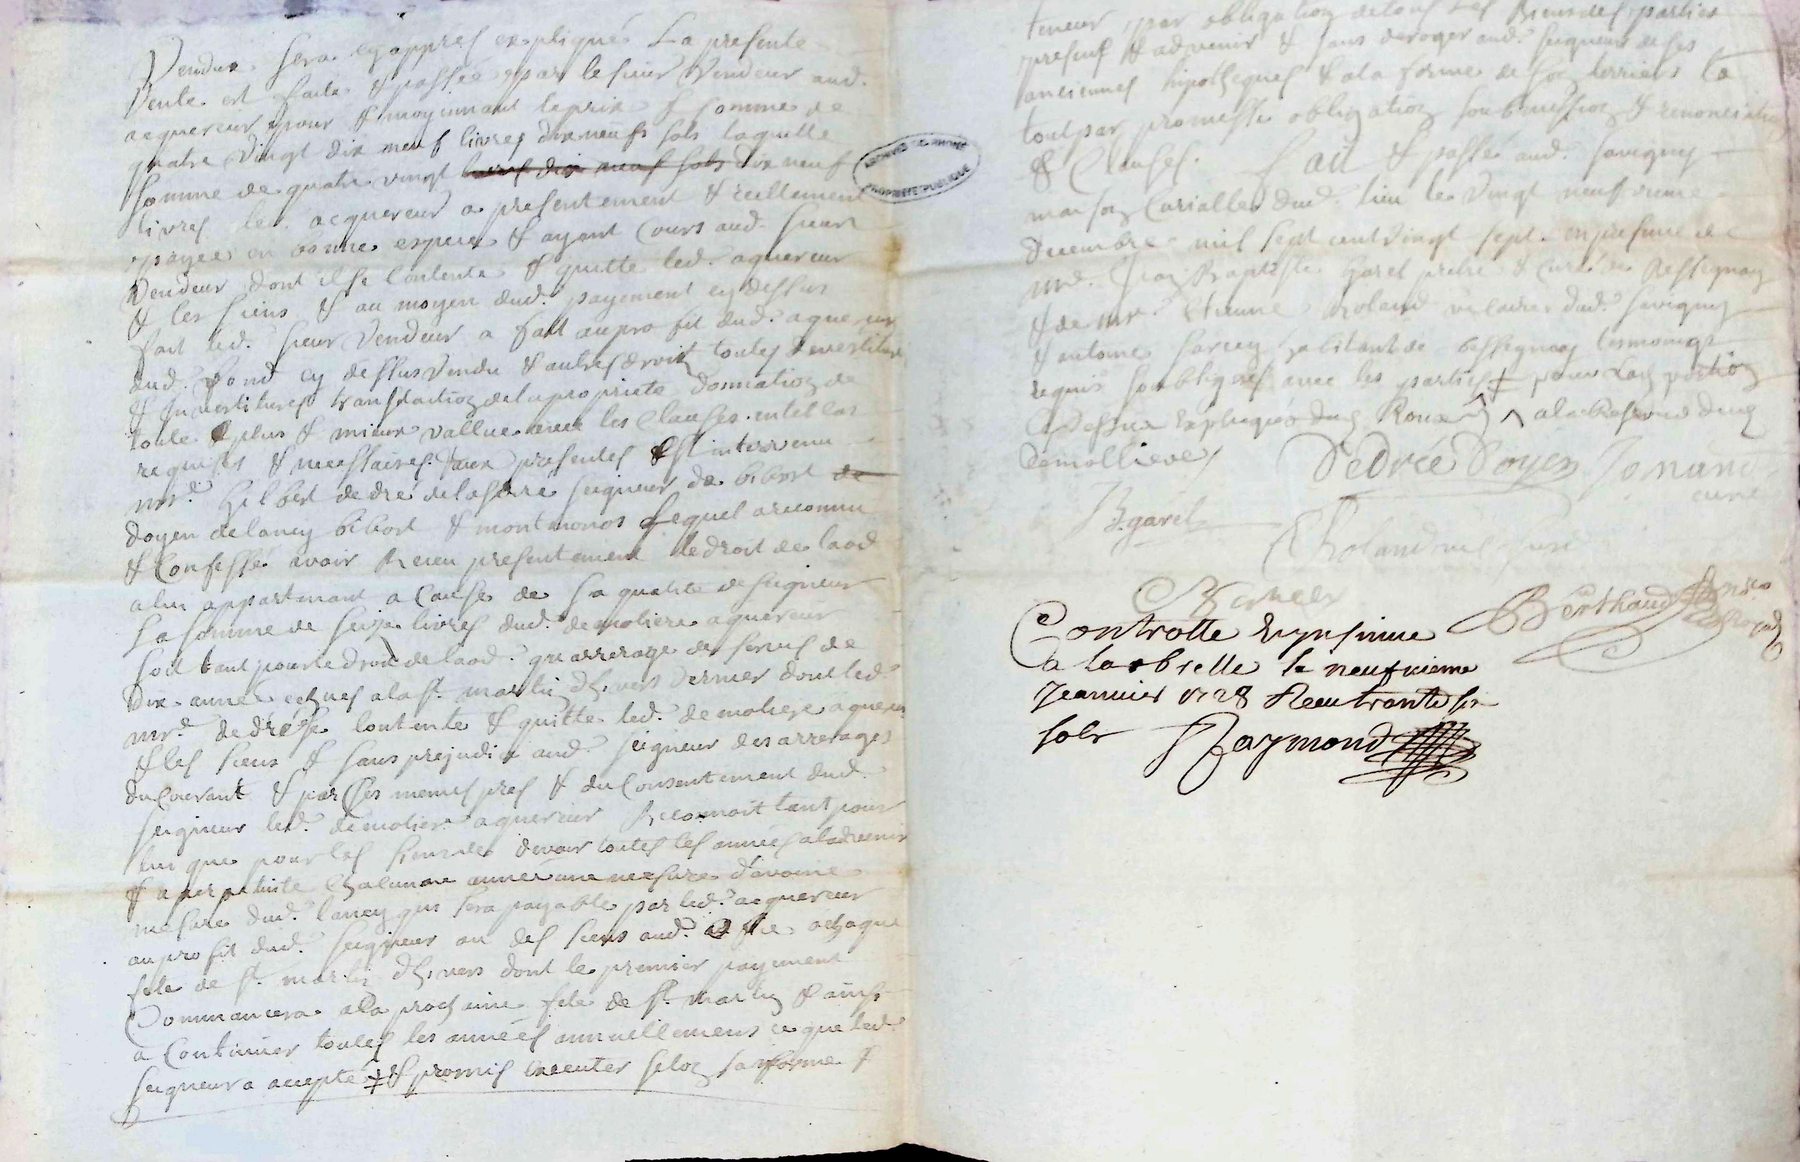 Vendue sera cy appres expliqué La presente
Vente est faite & passée par le sieur Vendeur aud.
acquereur pour & moyinnant le prix & somme de
quatre Vingt dix neuf livres dix neuf sols laquelle
somme de quatre vingt livres dix neuf sols dix neuf
livres le acquereur a presentement & reellement
payée en bonne espece & ayant Cours aud. sieur
Vendeur dont il se Contente & quitte led. aquereur
& les siens & au moyen dud. payement cy dessus
fait led. sieur Vendeur a fait au profit dud. aquereur
dud. fond cy dessus Vendu & autres droit toutes devestiture
& Investitures translation de la propriete donnation de
toute plus & mieux vallue avec les Clauses en tel cas
requises & necessaires. Aux presentes est intervenu
mr. Gilbert de dré de la serré seigneur de bibost de
doyen de lancy bibost & montmonos Lequel a reconnu
& Confessé avoir Receu presentement le droit de laod
a luy appartenant a Cause de sa qualité de seigneur
La somme de seize livres dud. demoliere aquereur
soit tant pour le droit de laod. que arrerage de servis de
Dix année echues a la st. martin d'hivers dernier dont led.
mr. de dré se Contente & quitte led. demoliere aquereur
& les siens & sans prejudice aud. seigneur des arrerages
du Courant & par Ces memes pres & du Consentement dud.
seigneur led. demoliere aquereur Reconnoit tant pour
luy que pour les siens de devoir toutes les années a l'advenir
& a perpetuité Chacune année une mesure d'avoine
mesure dud. lancy qui sera payable par led. acquereur
au profit dud. seigneur ou des siens aud. a chaque
fete de st. martin d'hivers dont le premier payement
Commancera a la prochaine fete de st. martin & ainsy
a Continuer toutes les années annuellement ce que led.
seigneur a accepté & promis executer selon sa forme &
teneur par obligation de tous les Biens des parties
presents & advenir & sans deroger aud. seigneur de ses
anciennes hipotheques & a la forme de son terrier Le
tout par promesse obligation soubmission & renonciation
& Clauses. Fait & passé aud. savigny
maison Curialle dud. lieu le Vingt neufvieme
decembre mil sept cent vingt sept en presence de
mr. Jean Baptiste Garel pretre & Curé de Bessegnay
& de mr. Etienne Roland vicaire dud. savigny
& antoine habitant de bessegnay tesmoings
requis soubsignés avec les parties pour
Cy dessus expliquée a la Reserve dud
demolliere
Dedrée Doyen Jonand
curé
B. garel
Rolland
Berthaud
Controllé & insinué
a larbrelle le neufvieme
Jeanvier 1728 Receu trante six
sols Raymond
ARCHIVES DU RHONE
PROPRIÉTÉ PUBLIQUE